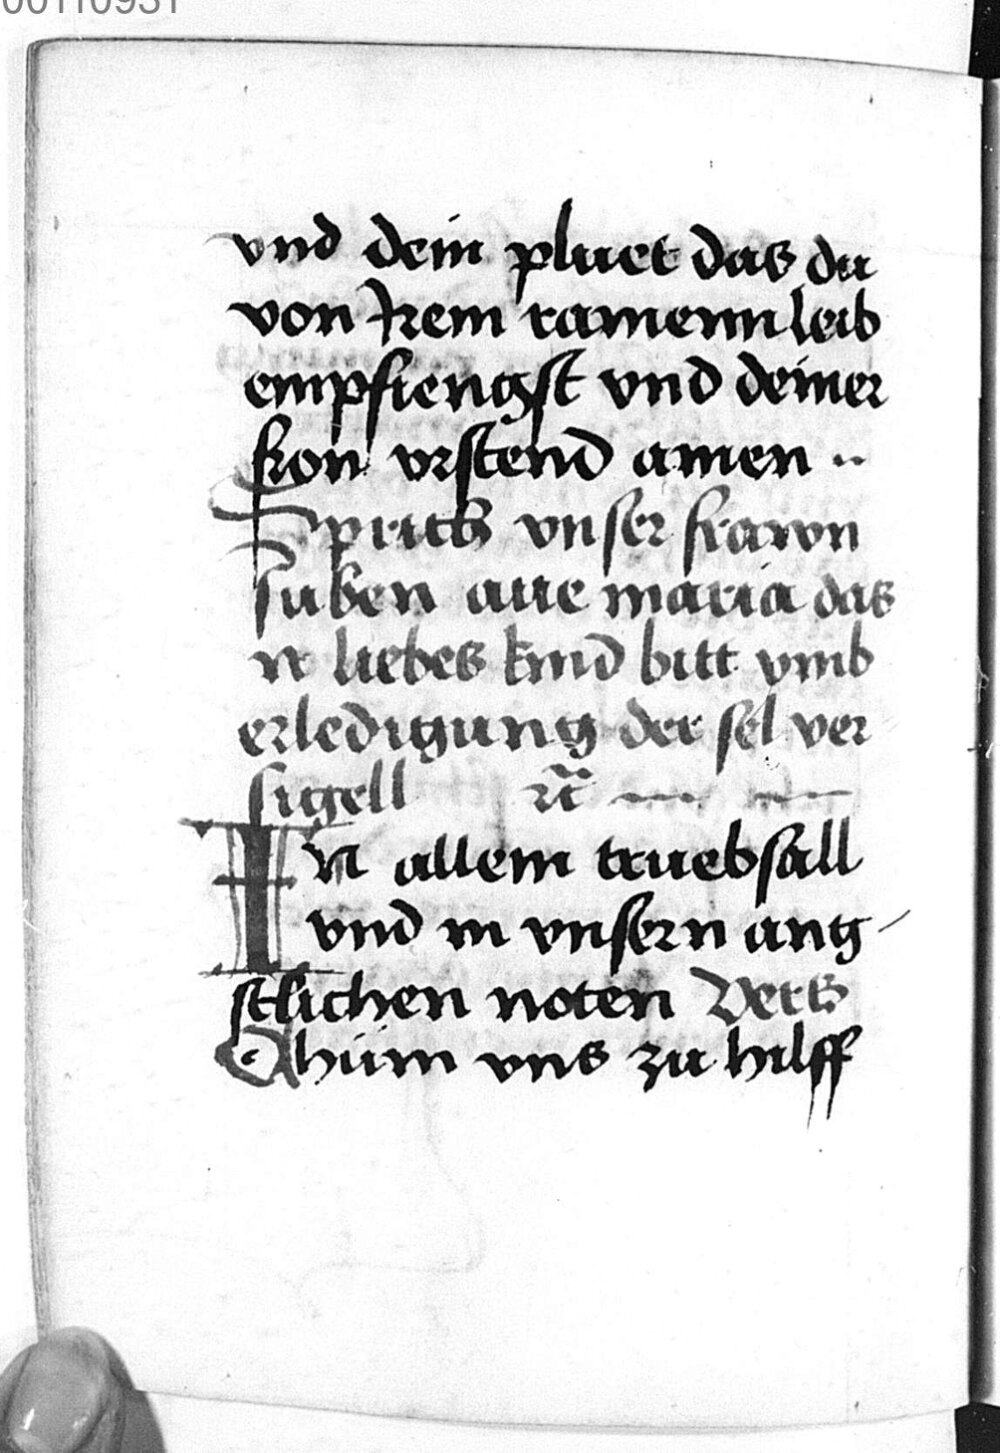 00110931
vnd dein pluet das du
von Irem rainenn leib
empfiengst vnd deiner
fron vrstend amen ..
Sprich vnser frawn
suben aue maria das
ir liebes kind bitt vmb
erledigung der sel ver
sigell
In allem truebsall
vnd in vnsern ang
stlichen noten Vers
Chüm vns zu hilff